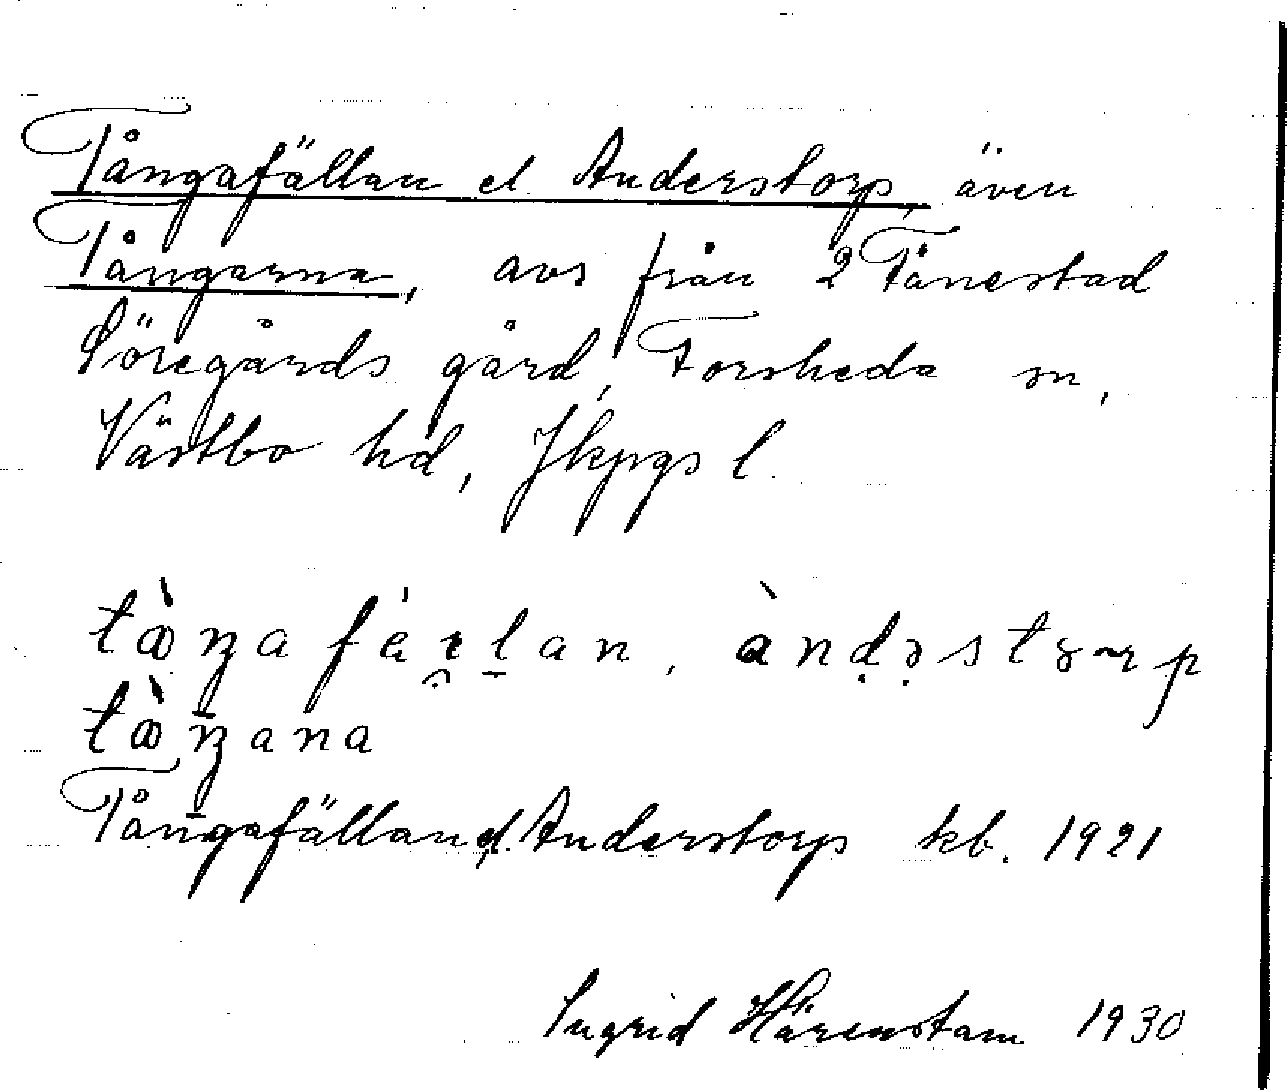 Tångafällan el Anderstorp, även
Tångarna, avs från 2 Tånestad
Söregårds gård, Forsheda sn,
Västbo hd, Jkpgs l.
Tångafällan el. Anderstorp kb. 1921
Ingrid Härenstam 1930